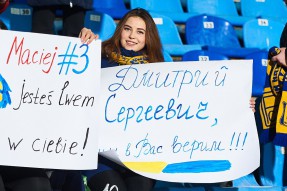 Maciej #3
jesteś Lwem
w Ciebie!
Дмитрий
Сергеевич,
в Вас верим!!!